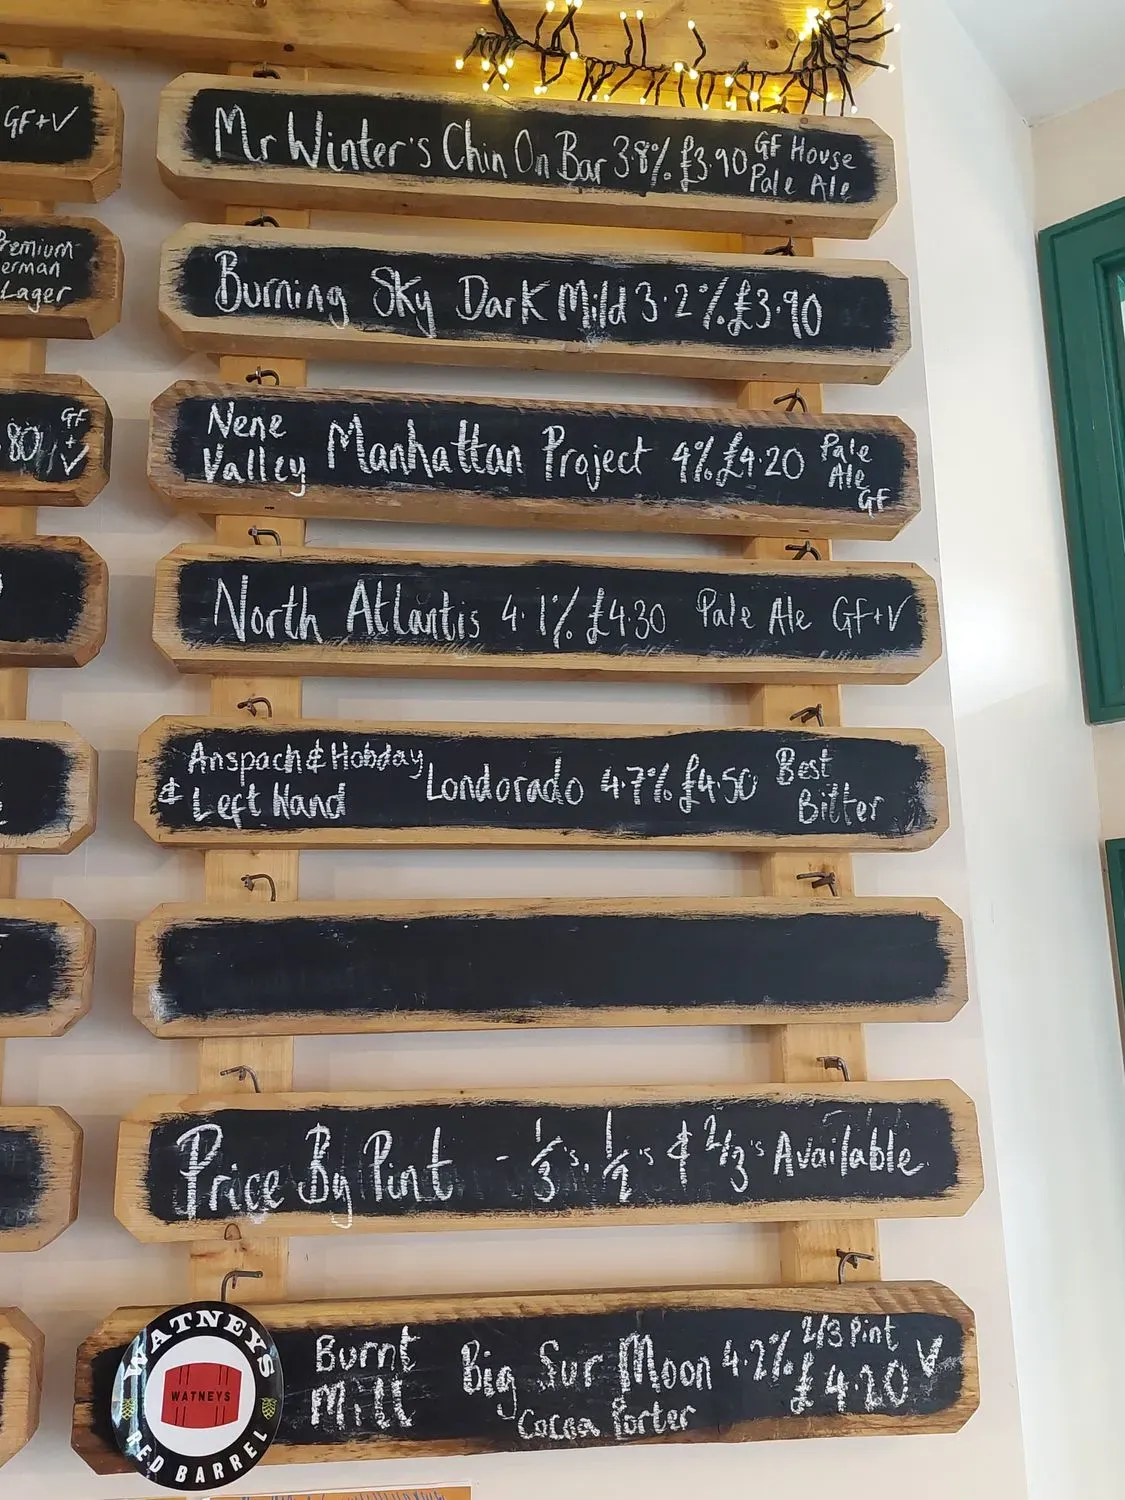 GF+V
Premium
erman
Lager
.80
GF
+
V
Mr Winter's Chin On Bar 3.8% £3.90 GF House
Pale Ale
Burning Sky Dark Mild 3.2% £3.90
Nene
Valley Manhattan Project 4% £4.20 Pale
Ale
GF
North Atlantis 4.1% £4.30 Pale Ale GF+V
Anspach & Hobday
& Left Hand Londorado 4.7% £4.50 Best
Bitter
Price By Pint - 1/3's, 1/2's & 2/3's Available
WATNEYS
WATNEYS
RED BARREL
Burnt
Mill Big Sur Moon 4.2% 2/3 Pint
£4.20 V
Cocoa Porter